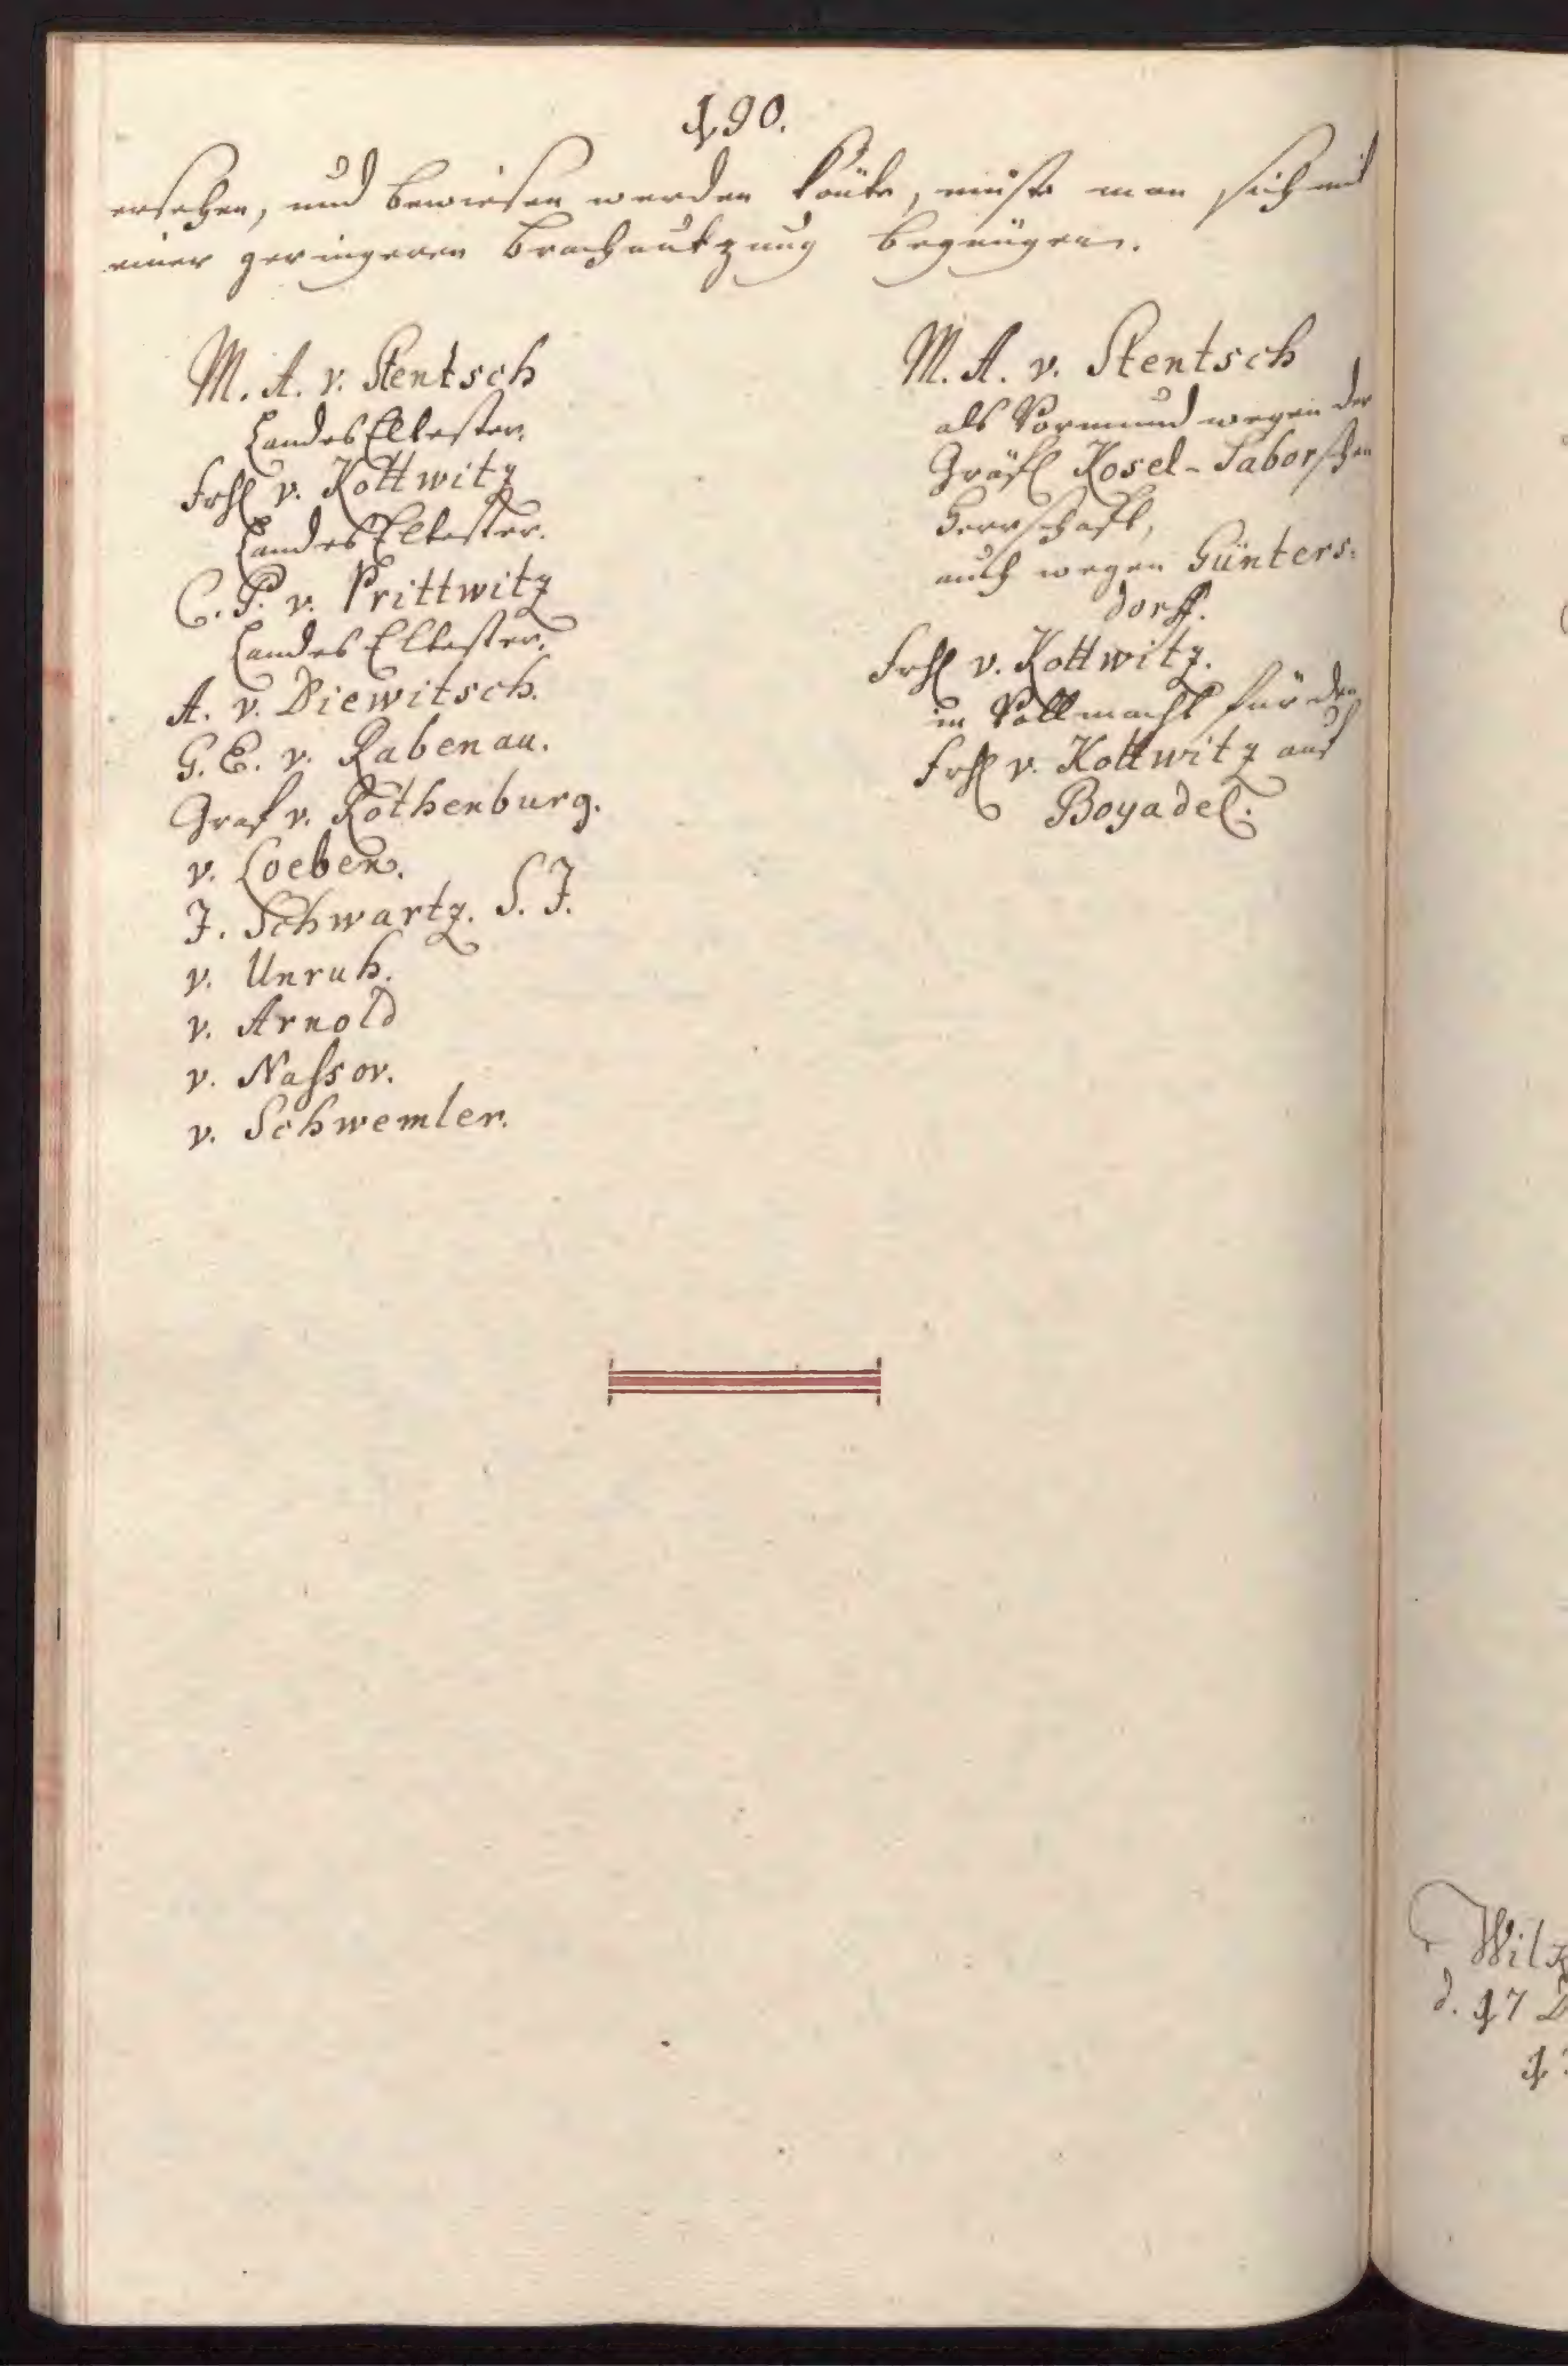 190.
ersehen, und bewiesen werden könte, müste man sich mit
einer geringeren Brachnutzung begnügen.
M. A. v. Stentsch
Landes Eltester.
Frhl v. Kottwitz
Landes Eltester.
C. P. v. Prittwitz
Landes Eltester.
A. v. Diewitsch.
G. E. v. Rabenau.
Graf v. Rothenburg.
v. Loeben.
J. Schwartz. S. J.
v. Unruh.
v. Arnold
v. Nassov.
v. Schwemler.
M. A. v. Stentsch
als Vormund wegen der
Gräfl Kosel-Saborschen
Herrschafft,
auch wegen Günters-
dorff.
Frhl v. Kottwitz.
in Vollmacht für den
Frhl v. Kottwitz auf
Boyadel.
d. 17